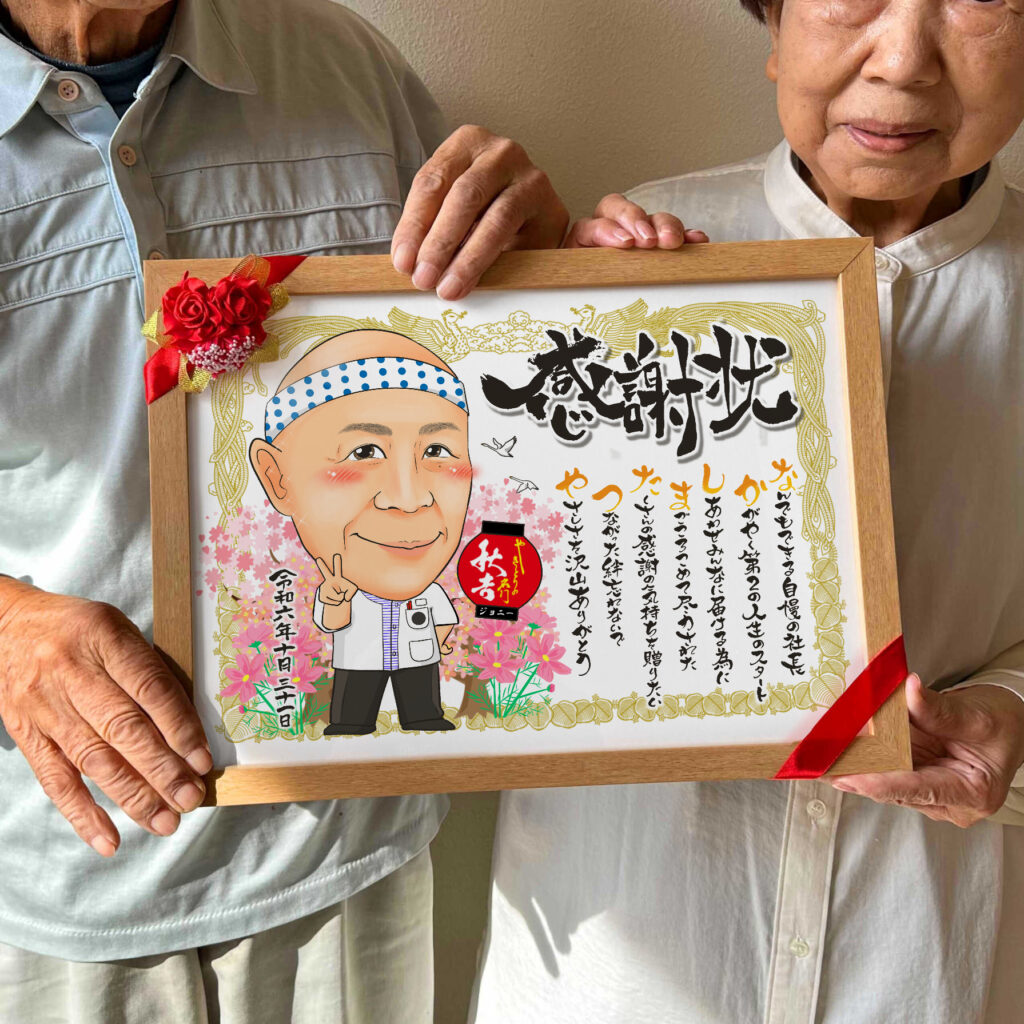 感謝状
なんでもできる自慢の社長
かがやく第2の人生のスタート
しあわせみんなに届ける為に
まごころこめて尽力された
たくさんの感謝の気持ちを贈りたい
つながった絆忘れないで
やさしさを沢山ありがとう
やきとりの
秋吉
ジョニー
令和六年十月三十一日